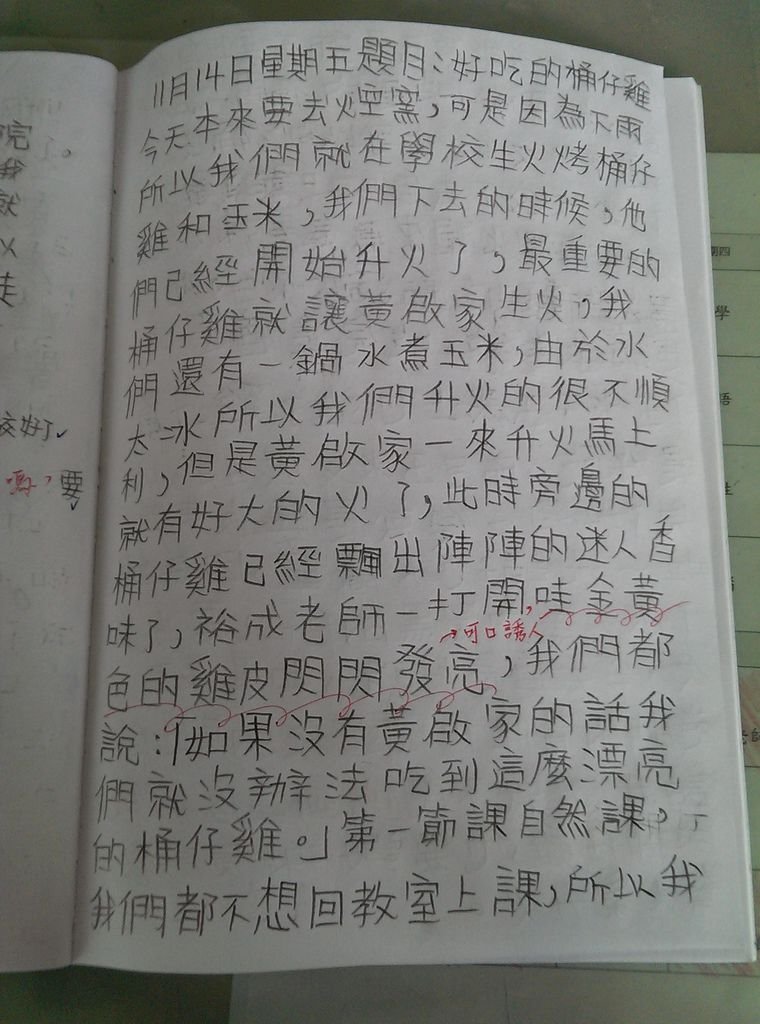 11月14日星期五題目：好吃的桶仔雞
今天本來要去火空窯，可是因為下雨
所以我們就在學校生火烤桶仔
雞和玉米，我們下去的時候，他
們已經開始升火了，最重要的
桶仔雞就讓黃啟家生火，我
們還有一鍋水煮玉米，由於水
太冰所以我們升火的很不順
利，但是黃啟家一來升火馬上
就有好大的火了，此時旁邊的
桶仔雞已經飄出陣陣的迷人香
味了，裕成老師一打開，哇金黃
可口誘人
色的雞皮閃閃發亮，我們都
說：「如果沒有黃啟家的話我
們就沒辦法吃到這麼漂亮
的桶仔雞。」第一節課自然課，
我們都不想回教室上課，所以我
完。
我
就
以
走
校好了
嗎，要
期四
學
語